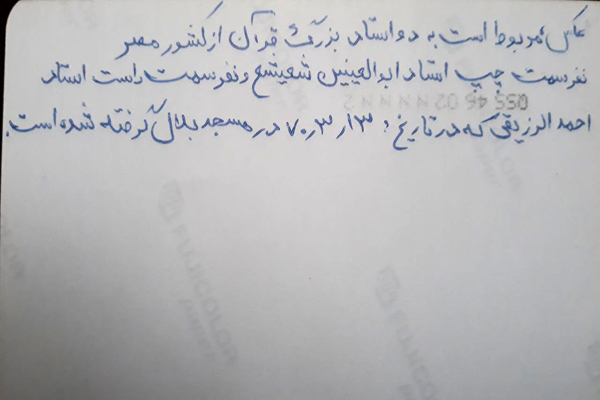 عکس مربوط است به دو استاد بزرگ قرآن از کشور مصر
نفر سمت چپ استاد ابوالعینین شعیشع و نفر سمت راست استاد
055 46 02 N N N N N 2
احمد الرزیقی که در تاریخ: ۷۰٫۳٫۱۳ در مسجد بلال گرفته شده است.